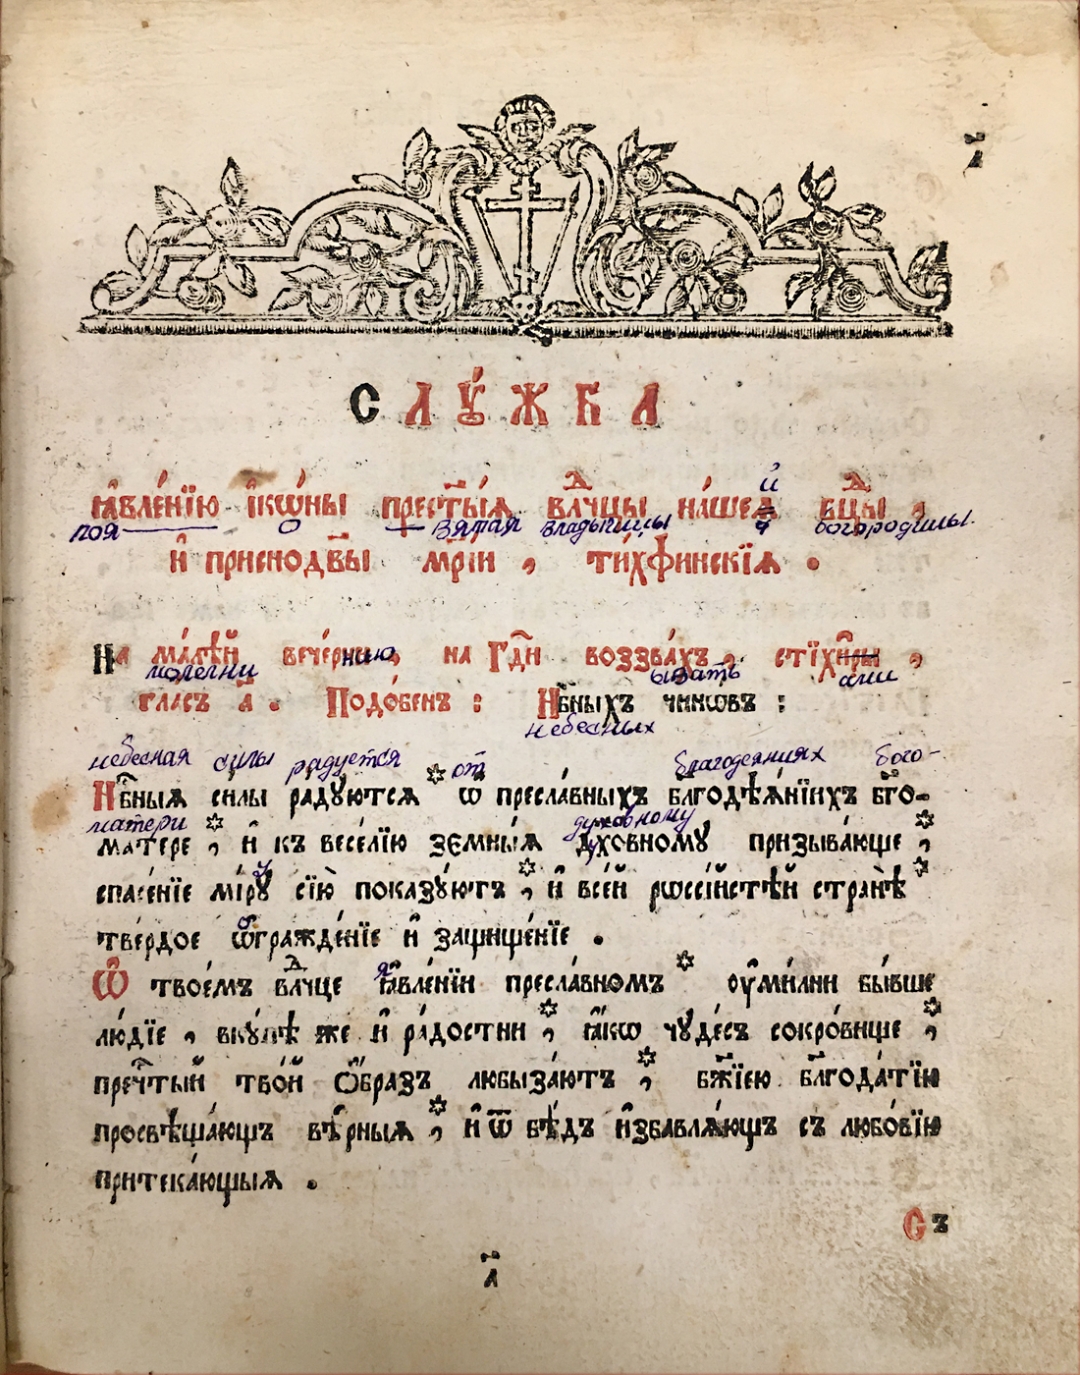 а҃
СЛУ́ЖБА
ꙗ҆вле́нїю і҆кѡ́ны прест҃ы́ѧ вл҃чцы на́шеѧ бц҃ы ,
поя о вятая владычицы й богородицы.
и҆ приснодв҃ы мр҃їи , ти́хфинскїѧ .
На ма́лѣй вече́рни, на Гдⷭ҇и воззва́хъ , стїхи̑ры ,
молелни нию ывать ами
гла́съ а҃ . Подо́бенъ : Нбⷭ҇ныхъ чинѡвъ :
небесных
небесная силы радуется от благодеяниях бого-
Нбⷭ҇ныѧ силы ра́дуютсѧ * ѡ пресла́вныхъ бл҃годѣѧ́нїихъ бг҃о-
матери духовному
матере , * и҆ къ весе́лїю земны́ѧ дꙋхо́вному призыва́юще , *
спасе́нїе мі́рꙋ сїю̀ показꙋ́ютъ , * и҆ все́й рѡссі́йстѣй странѣ̀ *
тве́рдое ѡ҆гражде́нїе и҆ защище́нїе .
Ѡ҆ твое́мъ влⷣчце ꙗ҆вле́нїи пресла́вномъ * ᲂу҆ми́лни бы́вше
лю́дїе , вкꙋ́пѣ же и҆ ра́достни , * ꙗ҆́кѡ чꙋде́съ сокро́вище , *
пречⷭ҇тый тво́й ѻ҆́бразъ любыза́ютъ , * бж҃їею бл҃года́тїю
просвѣща́ющъ вѣ̑рныѧ , * и҆ ѿ бѣ́дъ и҆збавлѧ́ющъ съ любо́вїю
притека́ющыѧ .
Съ
а҃